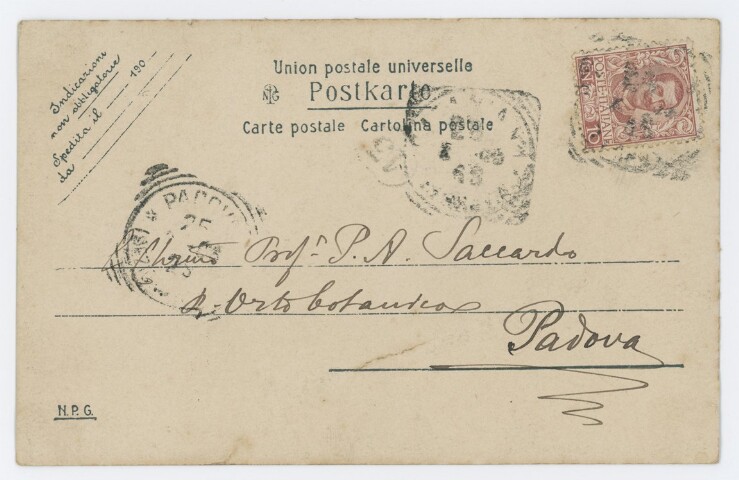 Indicazioni
non obbligatorie
Spedita il 190
da
Union postale universelle
Postkarte
Carte postale Cartolina postale
PADOV
25
Chimo Prof. P. A. Saccardo
R. Orto botanico
Padova
N.P.G.